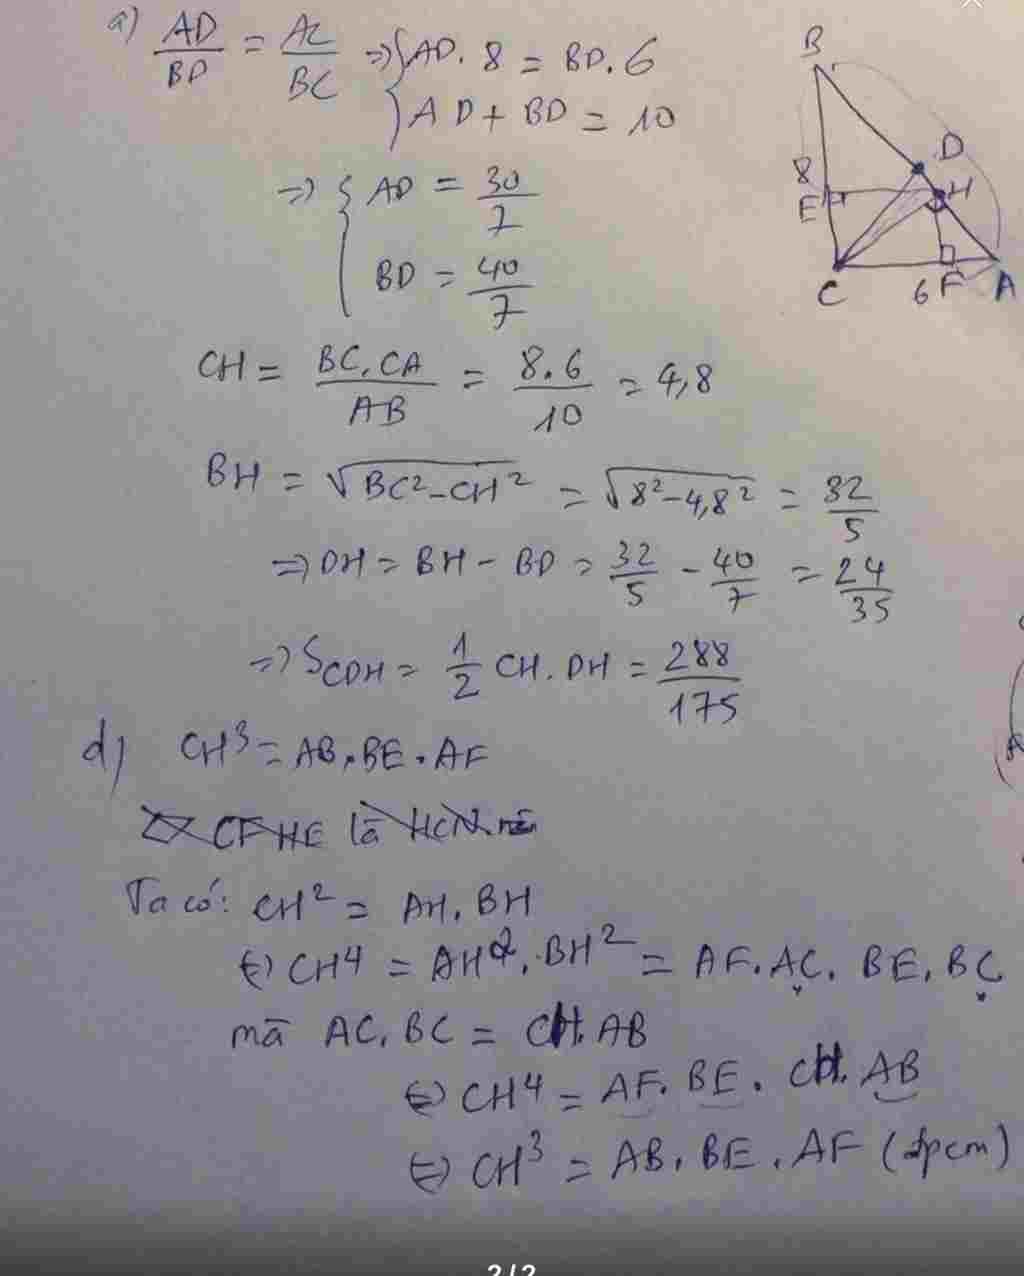 a) AD/BD = AC/BC => { AD . 8 = BD . 6
{ AD + BD = 10
=> { AD = 30/7
{ BD = 40/7
CH = BC . CA / AB = 8 . 6 / 10 = 4,8
BH = √(BC² - CH²) = √(8² - 4,8²) = 32/5
=> DH = BH - BD = 32/5 - 40/7 = 24/35
=> S_CDH = 1/2 CH . DH = 288/175
d) CH³ = AB . BE . AF
CFHE là HCN
Ta có: CH² = AH . BH
(=) CH⁴ = AH² . BH² = AF . AC . BE . BC
mà AC . BC = CH . AB
(=) CH⁴ = AF . BE . CH . AB
(=) CH³ = AB . BE . AF (đpcm)
B
D
8
E
H
C
6
F
A
2/2